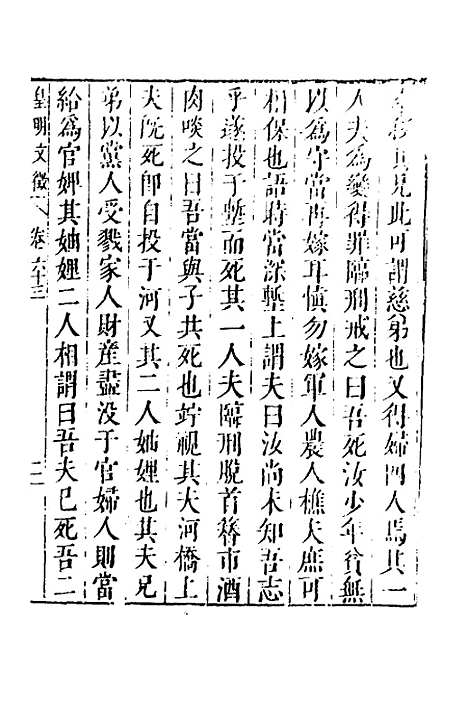 其兄此可謂慈弟也又得婦四人焉其一
人夫為變得罪臨刑戒之曰吾死汝少年貧無
以為守當再嫁耳慎勿嫁軍人農人樵夫庶可
相保也語時當深塹上謂夫曰汝尚未知吾志
乎遂投于塹而死其一人夫臨刑脫首簪市酒
肉啖之曰吾當與子共死也竚視其夫河橋上
夫既死即自投于河又其二人妯娌也其夫兄
弟以黨人受戮家人財産盡没于官婦人則當
給為官婢其妯娌二人相謂曰吾夫已死吾二
皇明文徵 卷六十三 二